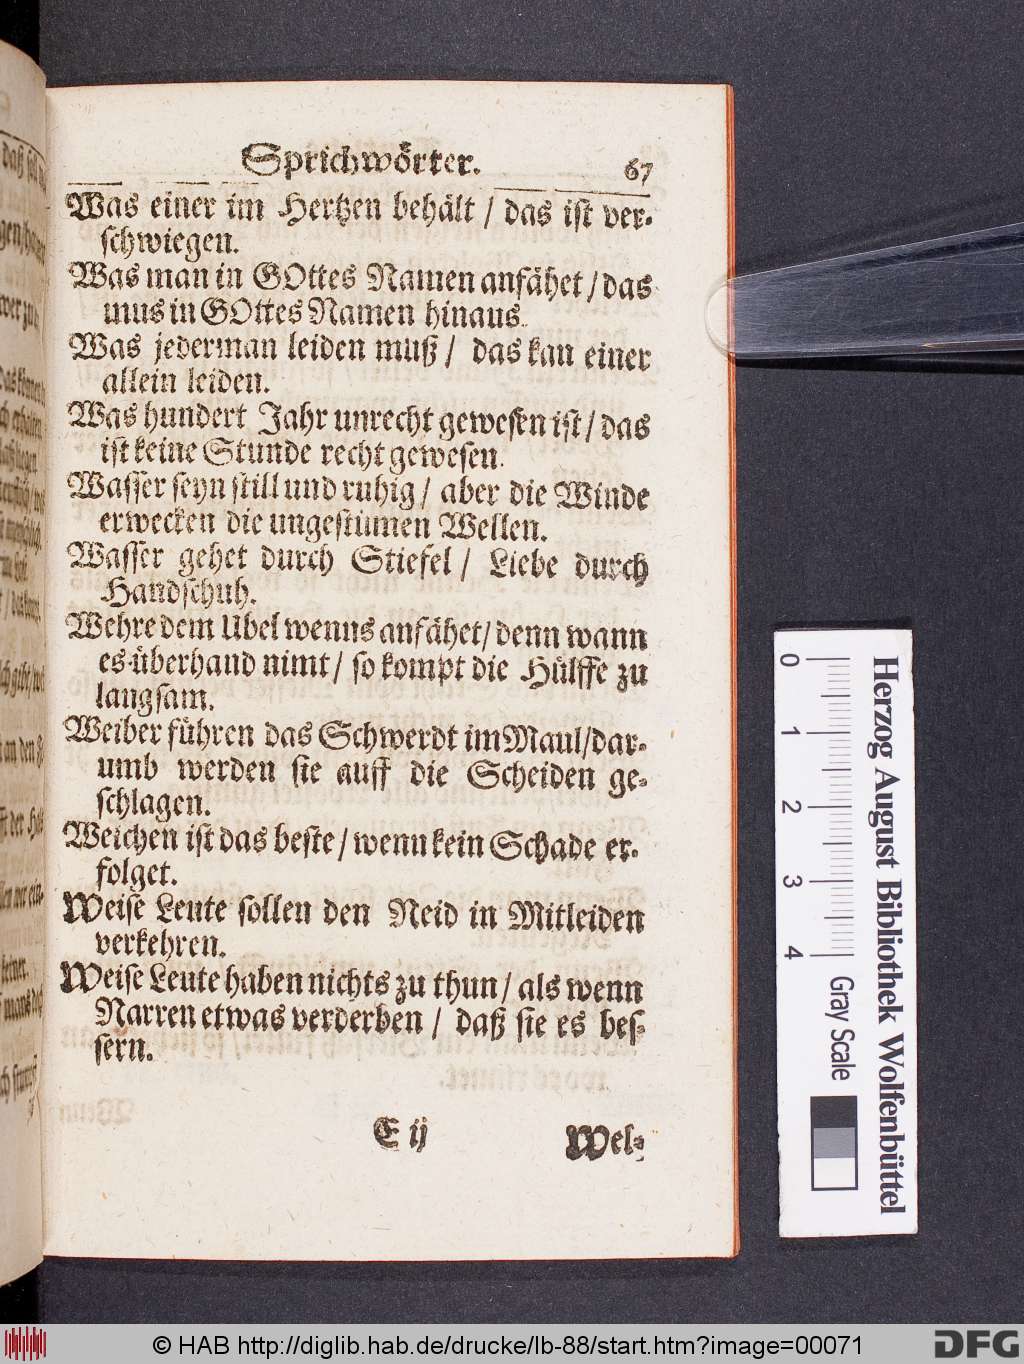 Sprichwörter. 67
Was einer im Hertzen behält / das ist ver-
schwiegen.
Was man in GOttes Namen anfähet / das
mus in GOttes Namen hinaus.
Was jederman leiden muß / das kan einer
allein leiden.
Was hundert Jahr unrecht gewesen ist / das
ist keine Stunde recht gewesen.
Wasser seyn still und ruhig / aber die Winde
erwecken die ungestümen Wellen.
Wasser gehet durch Stiefel / Liebe durch
Handschuh.
Wehre dem Ubel wenns anfähet / denn wann
es überhand nimt / so kompt die Hülffe zu
langsam.
Weiber führen das Schwerdt im Maul / dar-
umb werden sie auff die Scheiden ge-
schlagen.
Weichen ist das beste / wenn kein Schade er-
folget.
Weise Leute sollen den Neid in Mitleiden
verkehren.
Weise Leute haben nichts zu thun / als wenn
Narren etwas verderben / daß sie es bes-
sern.
E ij Wel-
Herzog August Bibliothek Wolfenbüttel
0 1 2 3 4 Gray Scale
© HAB http://diglib.hab.de/drucke/lb-88/start.htm?image=00071
DFG